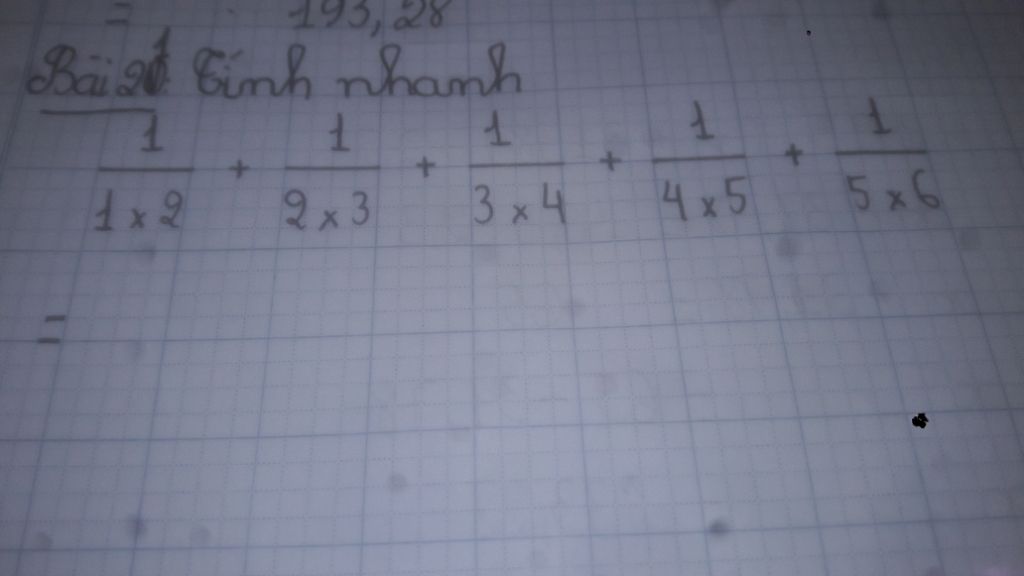 = 193,28
Bài 21 Tính nhanh
1/(1 x 2) + 1/(2 x 3) + 1/(3 x 4) + 1/(4 x 5) + 1/(5 x 6)
=